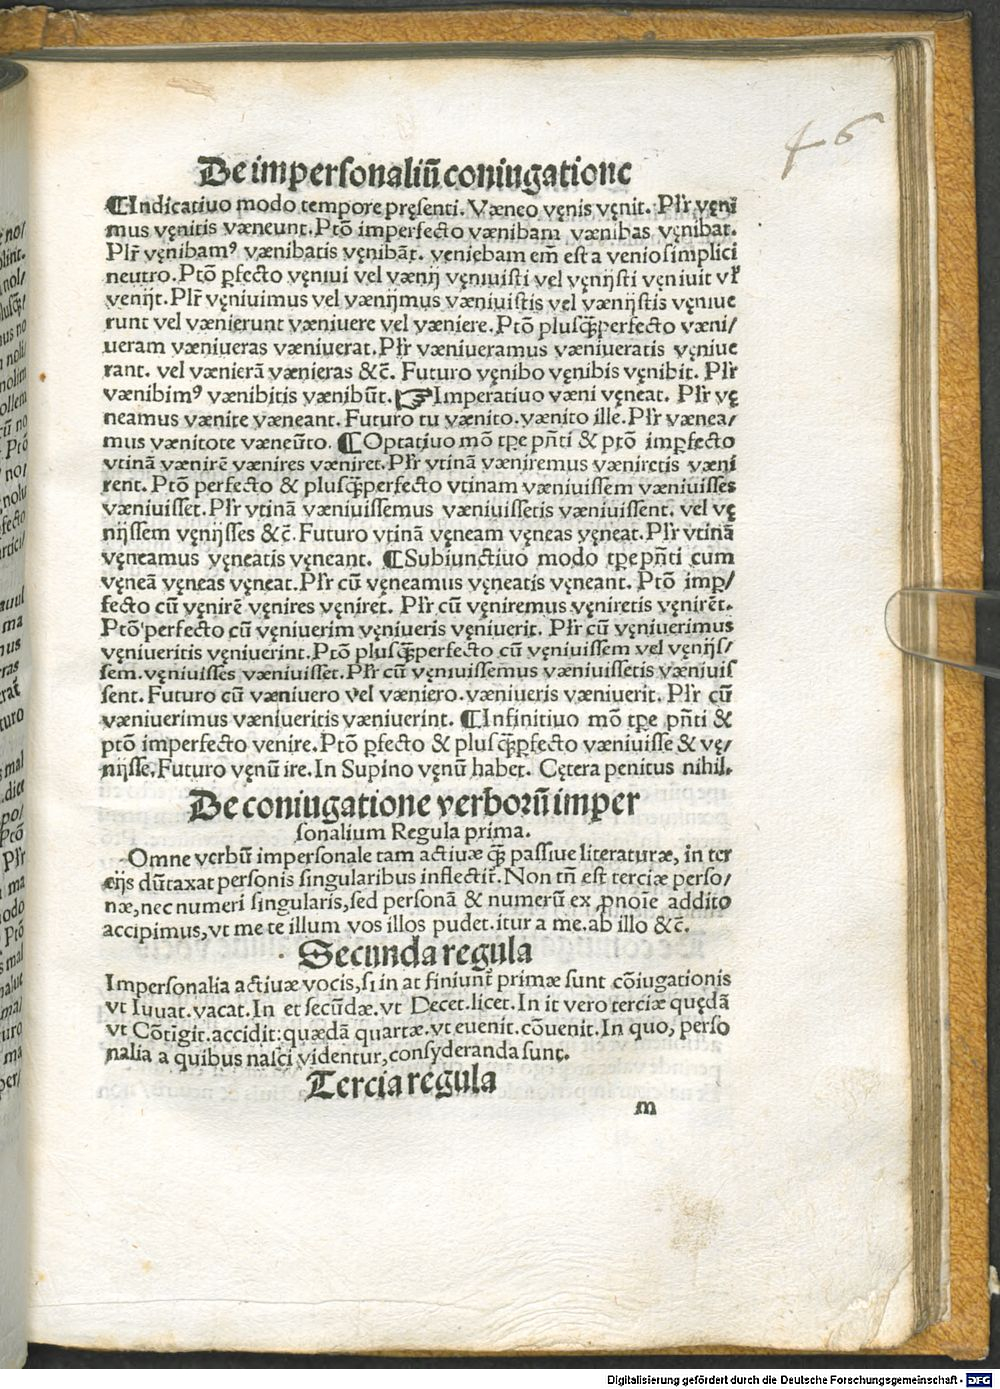 46
De impersonaliū coniugatione
¶Indicatiuo modo tempore pręsenti. Væneo vęnis vęnit. Płr vęni
mus vęnitis væneunt. Ptō imperfecto vænibam vænibas vęnibat.
Plr̄ vęnibamꝰ vænibatis vęnibāt. veniebam em̄ est a venio simplici
neutro. Ptō ꝑfecto vęniui vel vænij vęniuisti vel vęnijsti vęniuit vł
venijt. Plr̄ vęniuimus vel vænijmus væniuistis vel vænijstis vęniue
runt vel vænierunt væniuere vel væniere. Ptō plusq̄ꝑerfecto væni/
ueram væniueras væniuerat. Plr̄ væniueramus væniueratis vęniue
rant. vel vænierā vænieras &c̄. Futuro vęnibo vęnibis vęnibit. Plr̄
vænibimꝰ vænibitis vænibūt. ☞Imperatiuo væni vęneat. Plr̄ vę
neamus vænite væneant. Futuro tu vænito. vænito ille. Plr̄ vænea/
mus vænitote væneūto. ¶Optatiuo mō tꝑe pn̄ti & ptō imꝑfecto
vtinā vænirē vænires væniret. Plr̄ vtinā væniremus væniretis væni
rent. Ptō perfecto & plusq̄ꝑerfecto vtinam væniuissem væniuisses
væniuisset. Plr̄ vtinā væniuissemus væniuissetis væniuissent. vel vę
nijssem vęnijsses &c̄. Futuro vtinā vęneam vęneas vęneat. Plr̄ vtinā
vęneamus vęneatis vęneant. ¶Subiunctiuo modo tꝑe pn̄ti cum
vęneā vęneas vęneat. Plr̄ cū vęneamus vęneatis vęneant. Ptō imp/
fecto cū vęnirē vęnires vęniret. Plr̄ cū vęniremus vęniretis vęnirēt.
Ptō perfecto cū vęniuerim vęniueris vęniuerit. Plr̄ cū vęniuerimus
vęniueritis vęniuerint. Ptō plusq̄ꝑerfecto cū vęniuissem vel vęnijs/
sem. vęniuisses væniuisset. Plr̄ cū vęniuissemus væniuissetis væniuis
sent. Futuro cū væniuero vel væniero. væniueris væniuerit. Plr̄ cū
væniuerimus væniueritis væniuerint. ¶Infinitiuo mō tꝑe pn̄ti &
ptō imperfecto venire. Ptō ꝑfecto & plusq̄ꝑfecto væniuisse & vę/
nijsse. Futuro vęnū ire. In Supino vęnū habet. Cętera penitus nihil.
De coniugatione verborū imper
sonalium Regula prima.
Omne verbū impersonale tam actiuæ q̄ passiue literaturæ, in ter
cijs dūtaxat personis singularibus inflectit̄. Non tn̄ est terciæ perso/
næ, nec numeri singularis, sed personā & numerū ex ꝓnoīe addito
accipimus, vt me te illum vos illos pudet. itur a me. ab illo &c̄.
Secunda regula
Impersonalia actiuæ vocis, si in at finiunt̄ primæ sunt cōiugationis
vt Iuuat. vacat. In et secūdæ. vt Decet. licet. In it vero terciæ quędā
vt Cōtigit. accidit: quædā quartæ. vt euenit. cōuenit. In quo, perso
nalia a quibus nasci videntur, consyderanda sunt.
Tercia regula
m
Digitalisierung gefördert durch die Deutsche Forschungsgemeinschaft - DFG